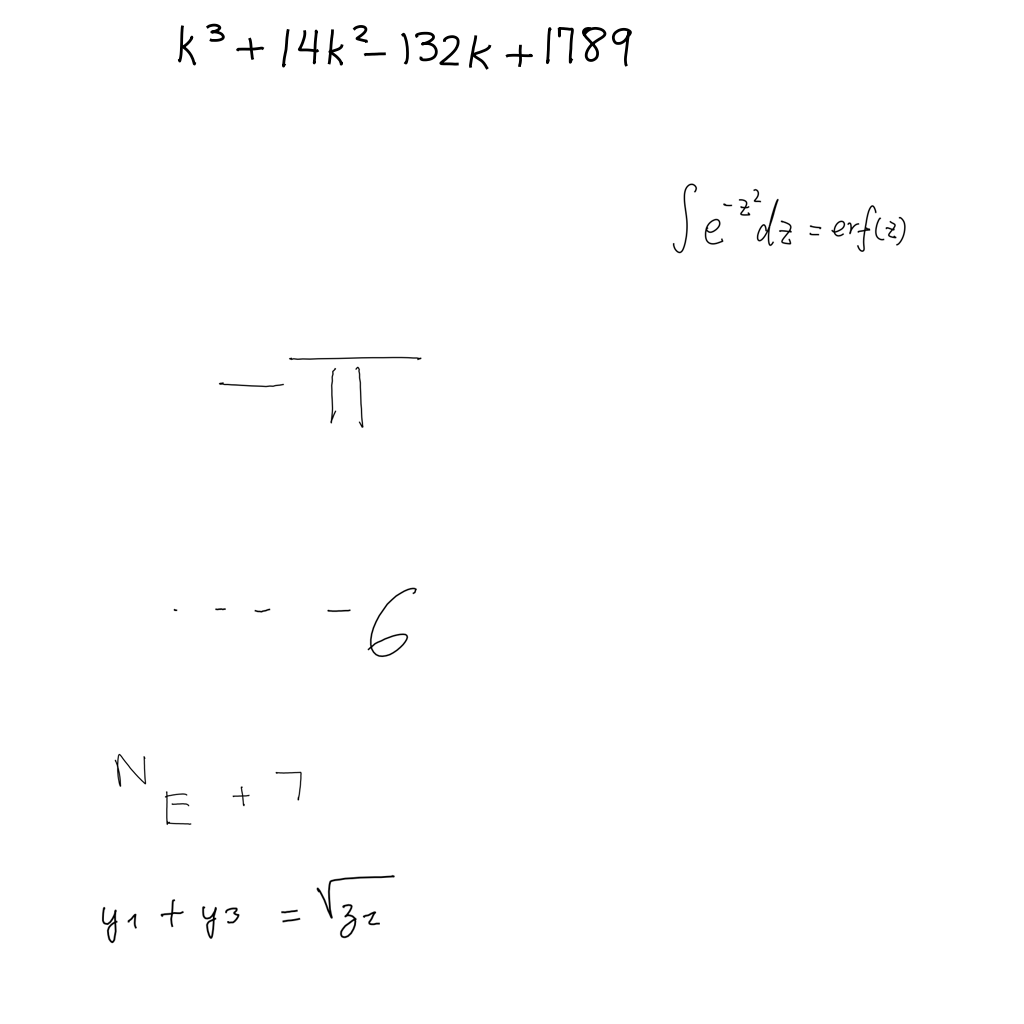 k³ + 14k² - 132k + 1789
∫e^{-z²}dz = erf(z)
- - - - 6
N_E + 7
y₁ + y₃ = √z₂